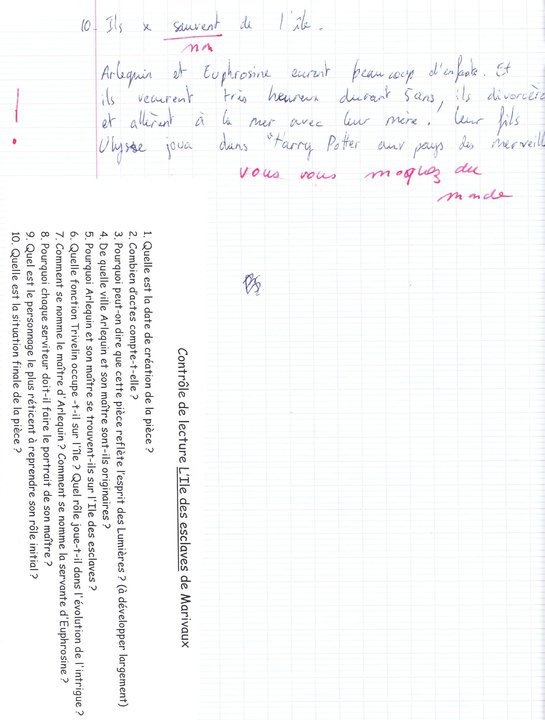 10. Ils x sauvent de l'île.
nn
Arlequin et Euphrosine eurent beaucoup d'enfants. Et
ils vecurent très heureux durant 5 ans, ils divorcère
et allèrent à la mer avec leur mère. Leur fils
Ulysse joua dans "Harry Potter aux pays des merveill
!
vous vous moquez du
monde
Contrôle de lecture L'Ile des esclaves de Marivaux
1. Quelle est la date de création de la pièce ?
2. Combien d'actes compte-t-elle ?
3. Pourquoi peut-on dire que cette pièce reflète l'esprit des Lumières ? (à développer largement)
4. De quelle ville Arlequin et son maître sont-ils originaires ?
5. Pourquoi Arlequin et son maître se trouvent-ils sur l'Ile des esclaves ?
6. Quelle fonction Trivelin occupe -t-il sur l'île ? Quel rôle joue-t-il dans l'évolution de l'intrigue ?
7. Comment se nomme le maître d'Arlequin ? Comment se nomme la servante d'Euphrosine ?
8. Pourquoi chaque serviteur doit-il faire le portrait de son maître ?
9. Quel est le personnage le plus réticent à reprendre son rôle initial ?
10. Quelle est la situation finale de la pièce ?